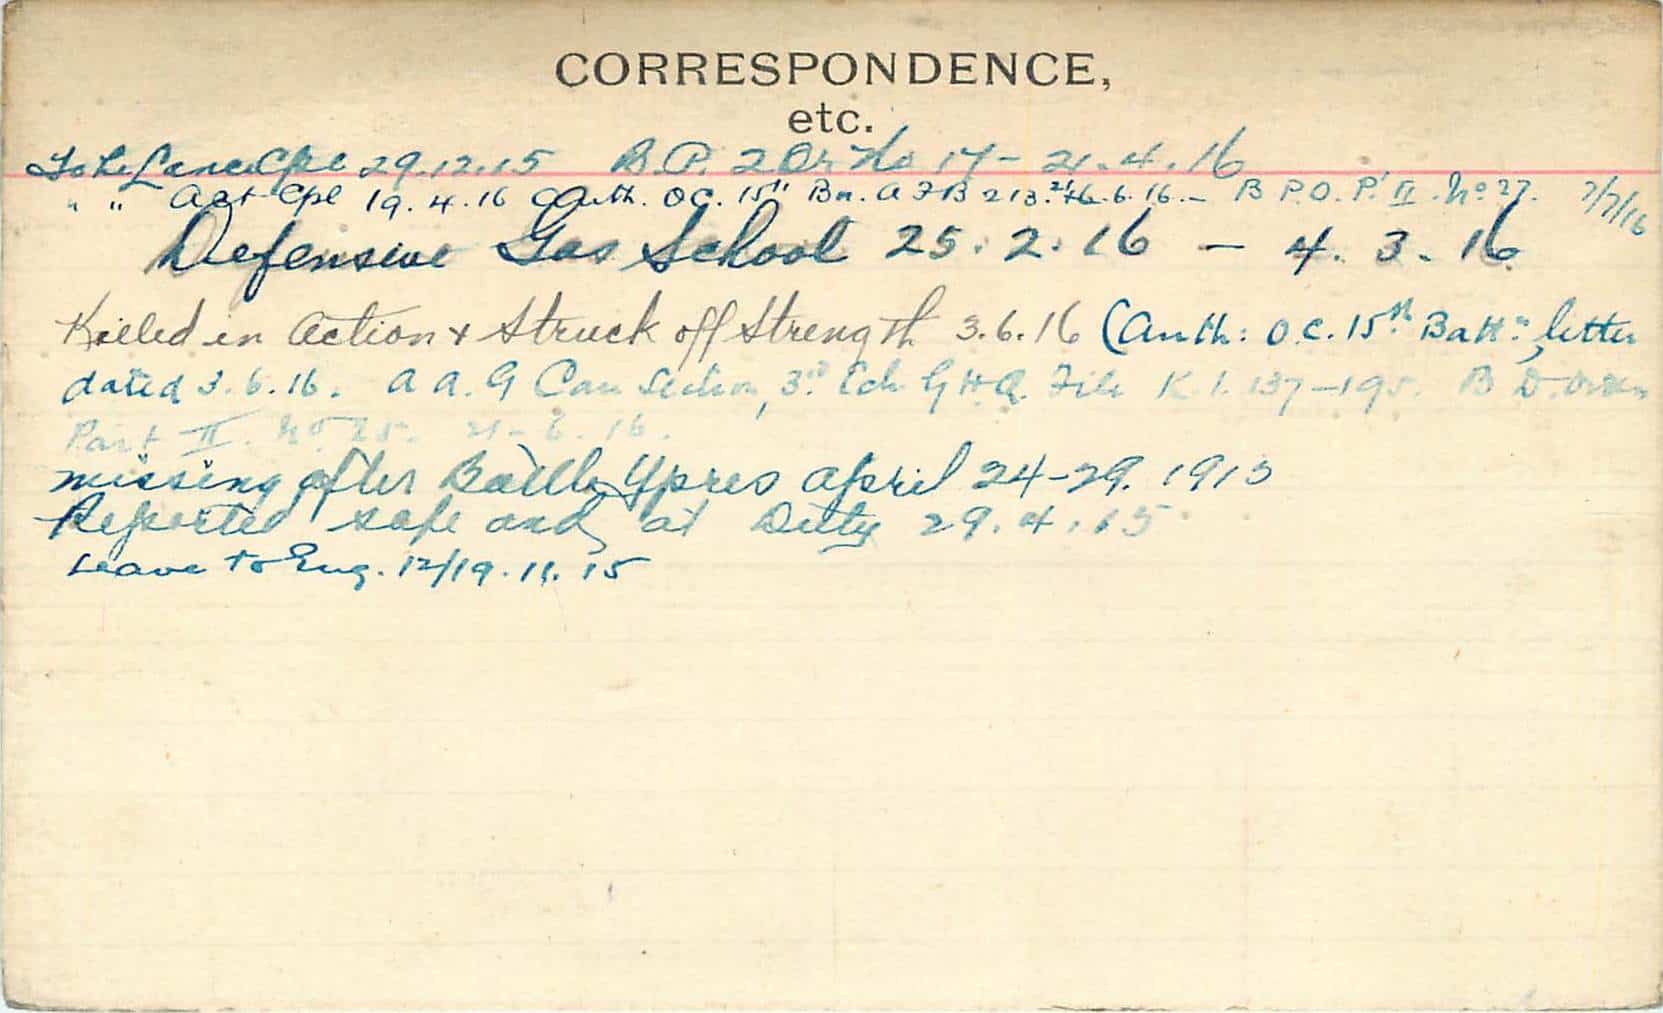 CORRESPONDENCE,
etc.
To be Lance Cpl 29.12.15 B.P. 2 Or No 17 - 21.4.16
" " Act Cpl 19.4.16 (Auth. OC. 15th Bn. A F B 213. 6.6.16. - B P.O. Pt II. No 27. 7/7/16
Defensive Gas School 25.2.16 - 4.3.16
Killed in Action & Struck off Strength 3.6.16 (Auth: O.C. 15th Battn, letter
dated 3.6.16. A A. G Can Section, 3rd Ech G H Q. File K. 1. 137-195. B D. Orders
Part II. No 25. 21-6.16.
missing after Battle Ypres April 24-29. 1915
Reported safe and at Duty 29.4.15
Leave to Eng. 12/19.11.15